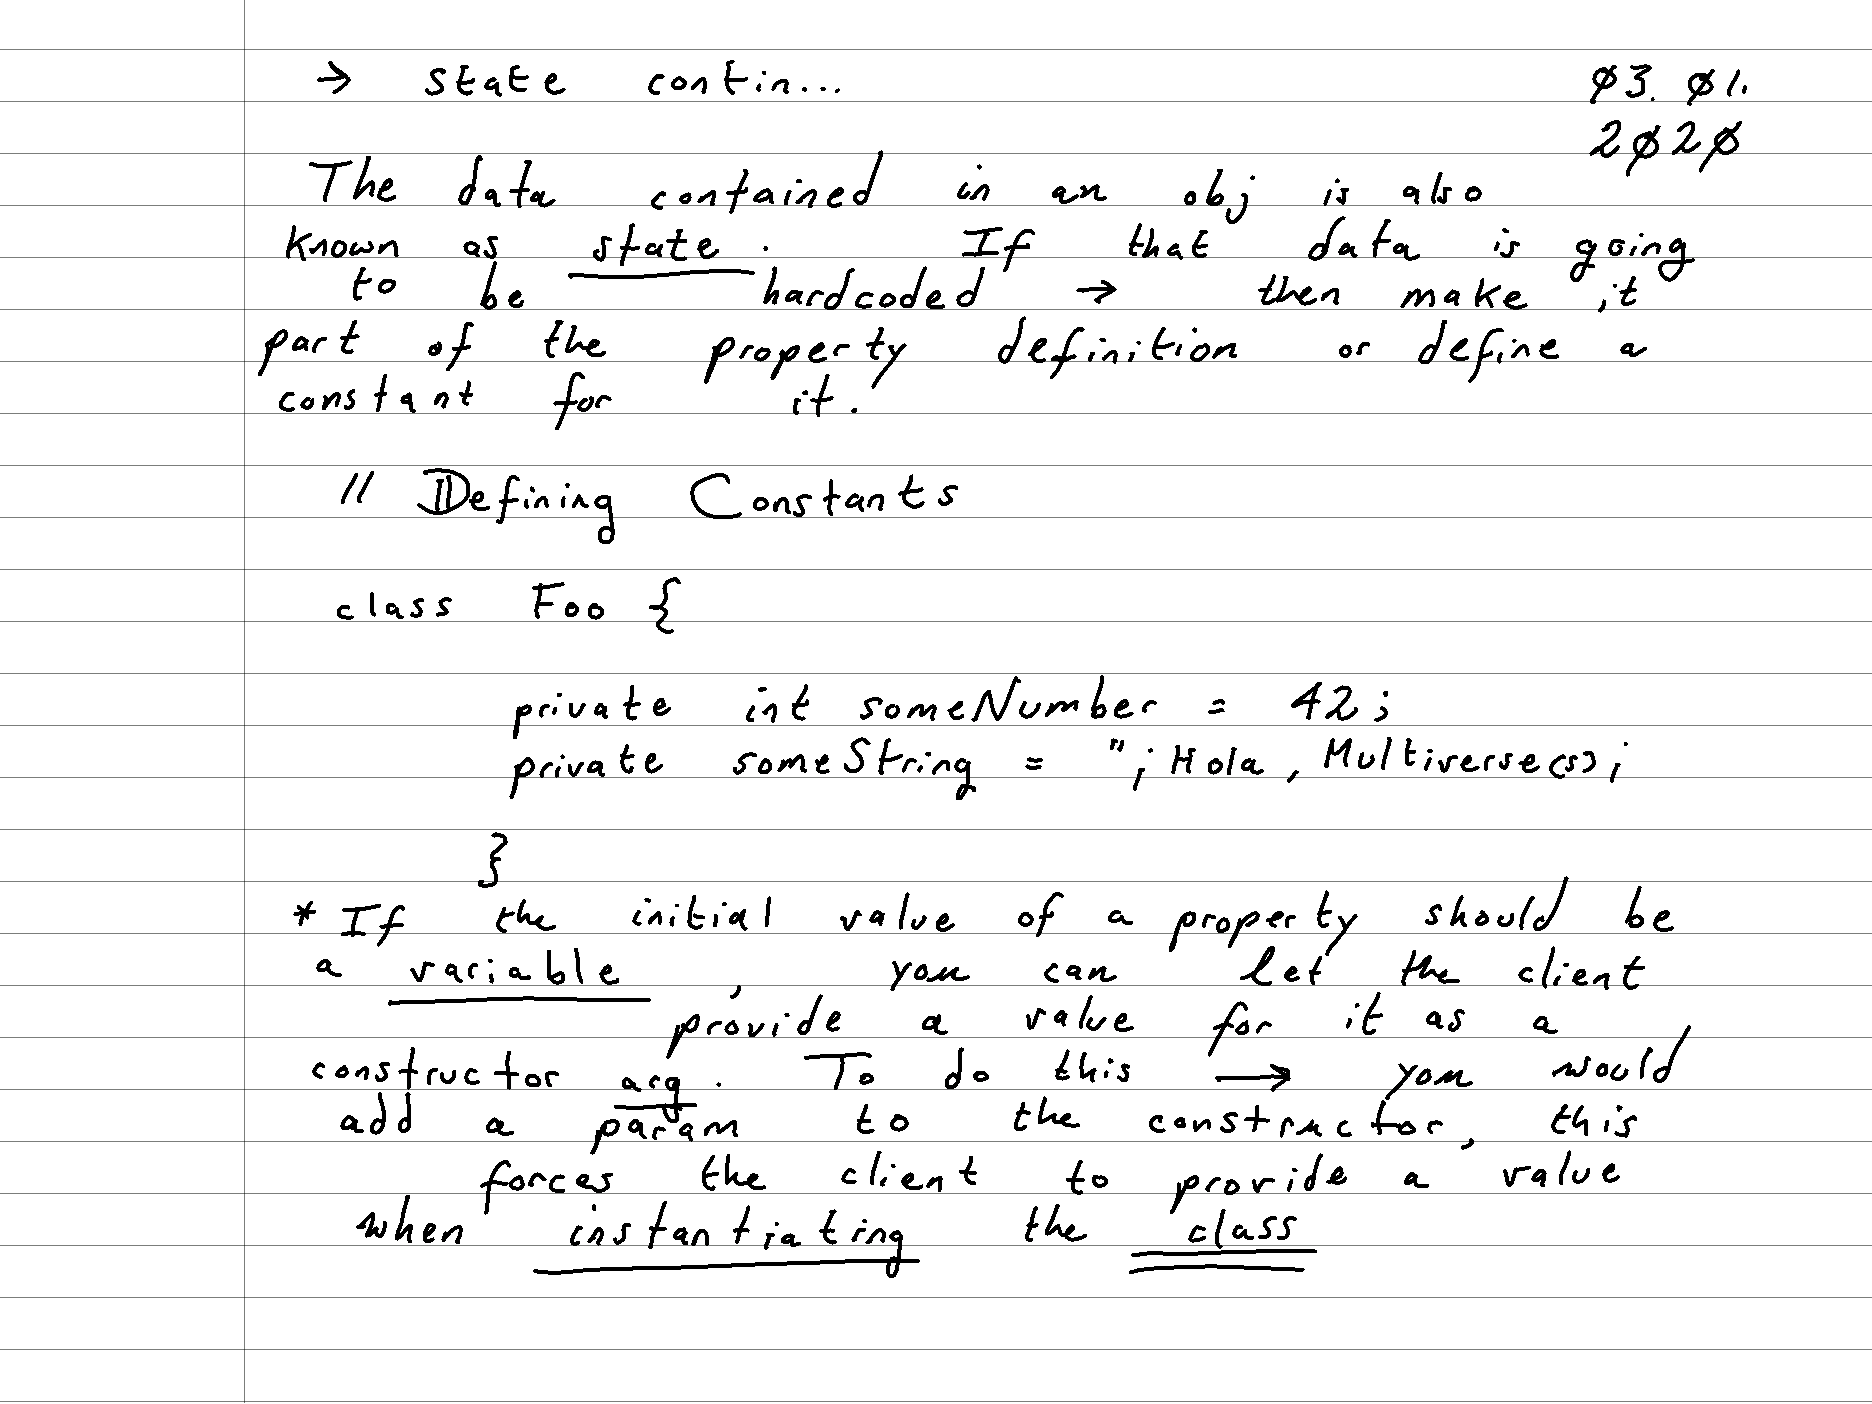 → state contin...
03. 01.
2020
The data contained in an obj is also
known as state. If that data is going
to be hardcoded → then make it
part of the property definition or define a
constant for it.
// Defining Constants
class Foo {
private int someNumber = 42;
private someString = "¡Hola, Multiverse(s);
}
* If the initial value of a property should be
a variable, you can let the client
provide a value for it as a
constructor arg. To do this → you would
add a param to the constructor, this
forces the client to provide a value
when instantiating the class